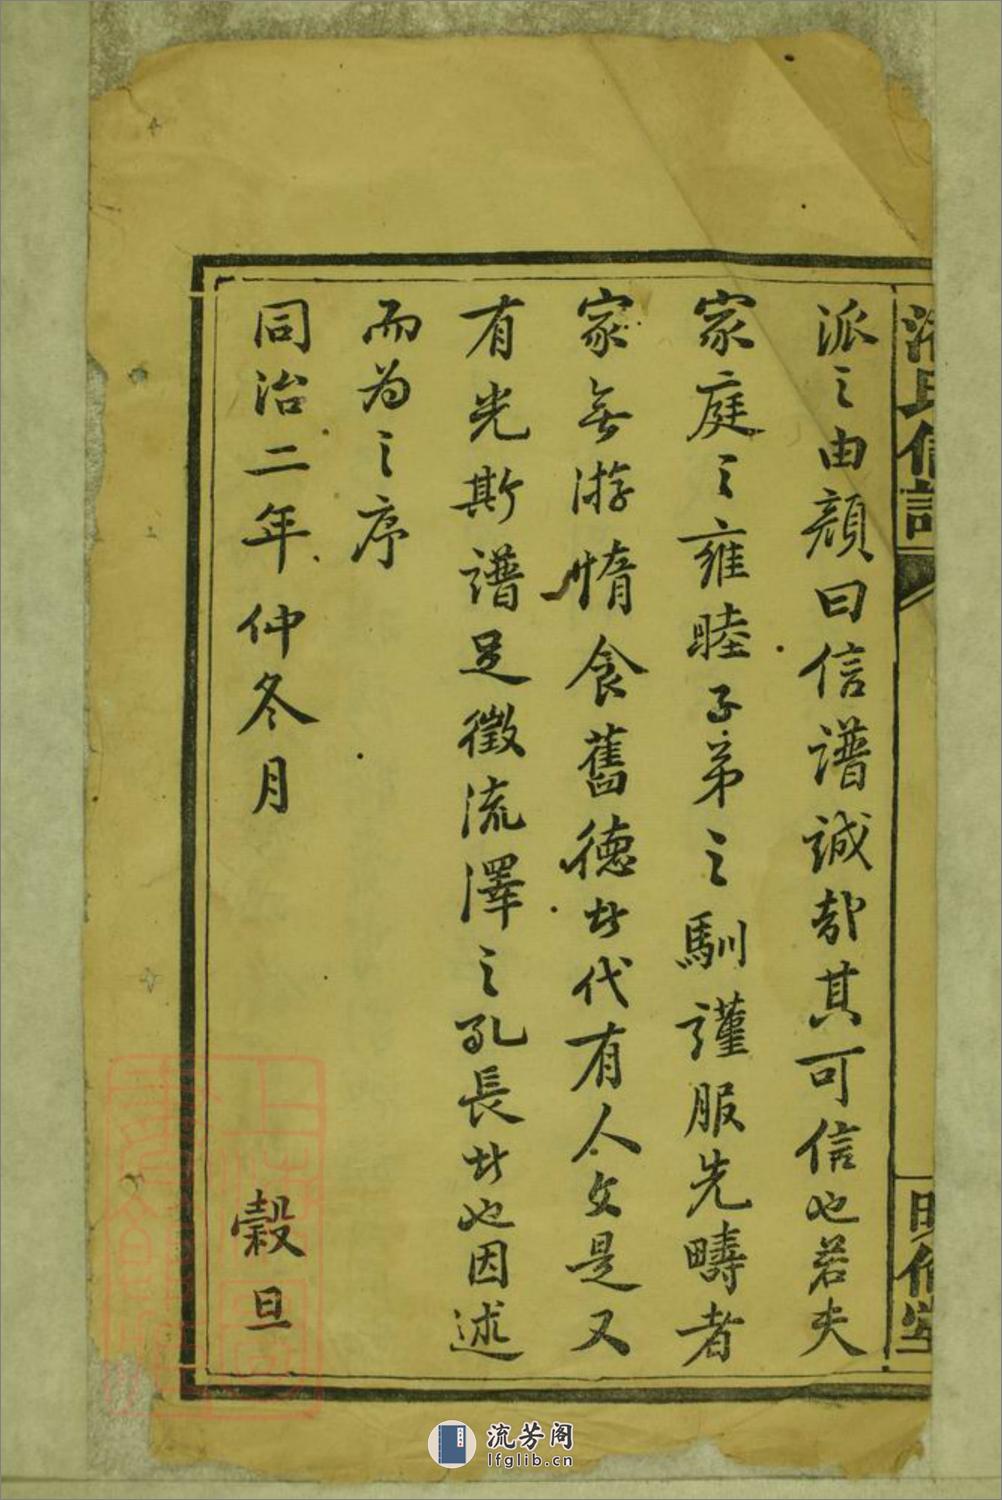 派之由顔曰信譜誠哉其可信也若夫
家庭之雍睦子弟之馴謹服先疇者
家無游惰食舊德者代有人文是又
有光斯譜足徵流澤之孔長者也因述
而为之序
同治二年仲冬月 穀旦
氏信譜
明倫堂
流芳阁
lfglib.cn